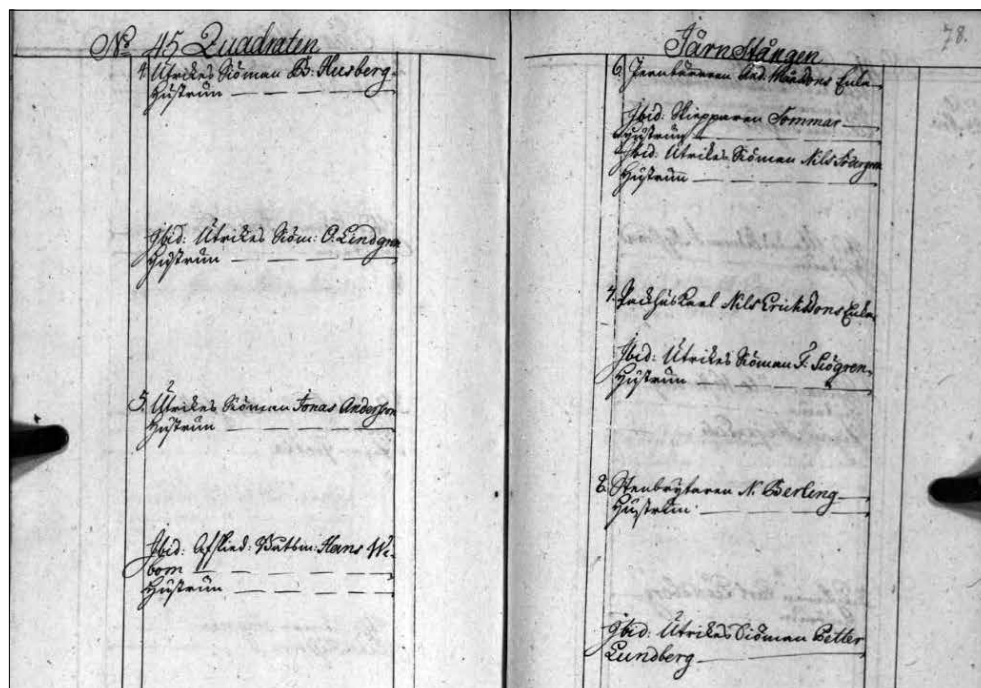 No 45 Quadraten
4. Utrikes Siöman B. Husberg
Hustrun
Ibid: Utrikes Siöm: O. Lindgren
Hustrun
2
5. Utrikes Siöman Jonas Anderson
Hustrun
Ibid: Afsked: Båtsm: Hans Wi-
bom
Hustrun
Järn Stången
78.
6. Jernbäraren And. Månsons Enka
Ibid: Skepparen Sommar
Hustrun
Ibid: Utrikes Siöman Nils Södergren
Hustrun
7. Packhus Karl Nils Ericksons Enka
Ibid: Utrikes Siöman F. Siögren
Hustrun
8. Stenbrytaren N. Berling
Hustrun
Ibid: Utrikes Siöman Petter
Lundberg